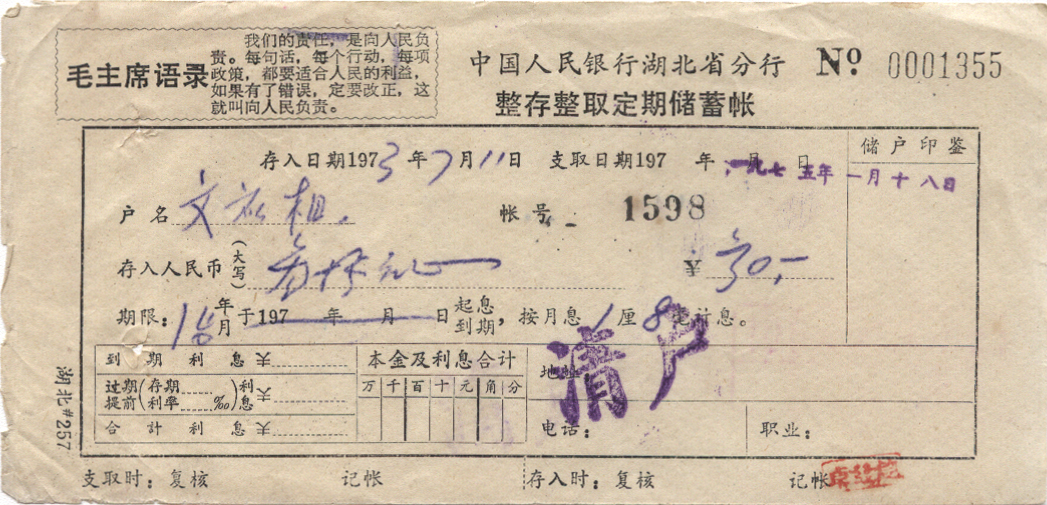 毛主席语录
我们的责任，是向人民负
责。每句话，每个行动，每项
政策，都要适合人民的利益，
如果有了错误，定要改正，这
就叫向人民负责。
中国人民银行湖北省分行 № 0001355
整存整取定期储蓄帐
存入日期1973年7月11日 支取日期197 年 月 日
储户印鉴
一九七五年一月十八日
户名 文 相 帐号 1598
存入人民币（大写） ¥ 30,-
期限： 年月于197 年 月 日起息到期，按月息1厘8毫计息。
清户
到期利息¥
过期提前（存期 利率 ‰）利息¥
合计利息¥
本金及利息合计
万千百十元角分
地址：
电话： 职业：
支取时：复核 记帐 存入时：复核 记帐
湖北#257